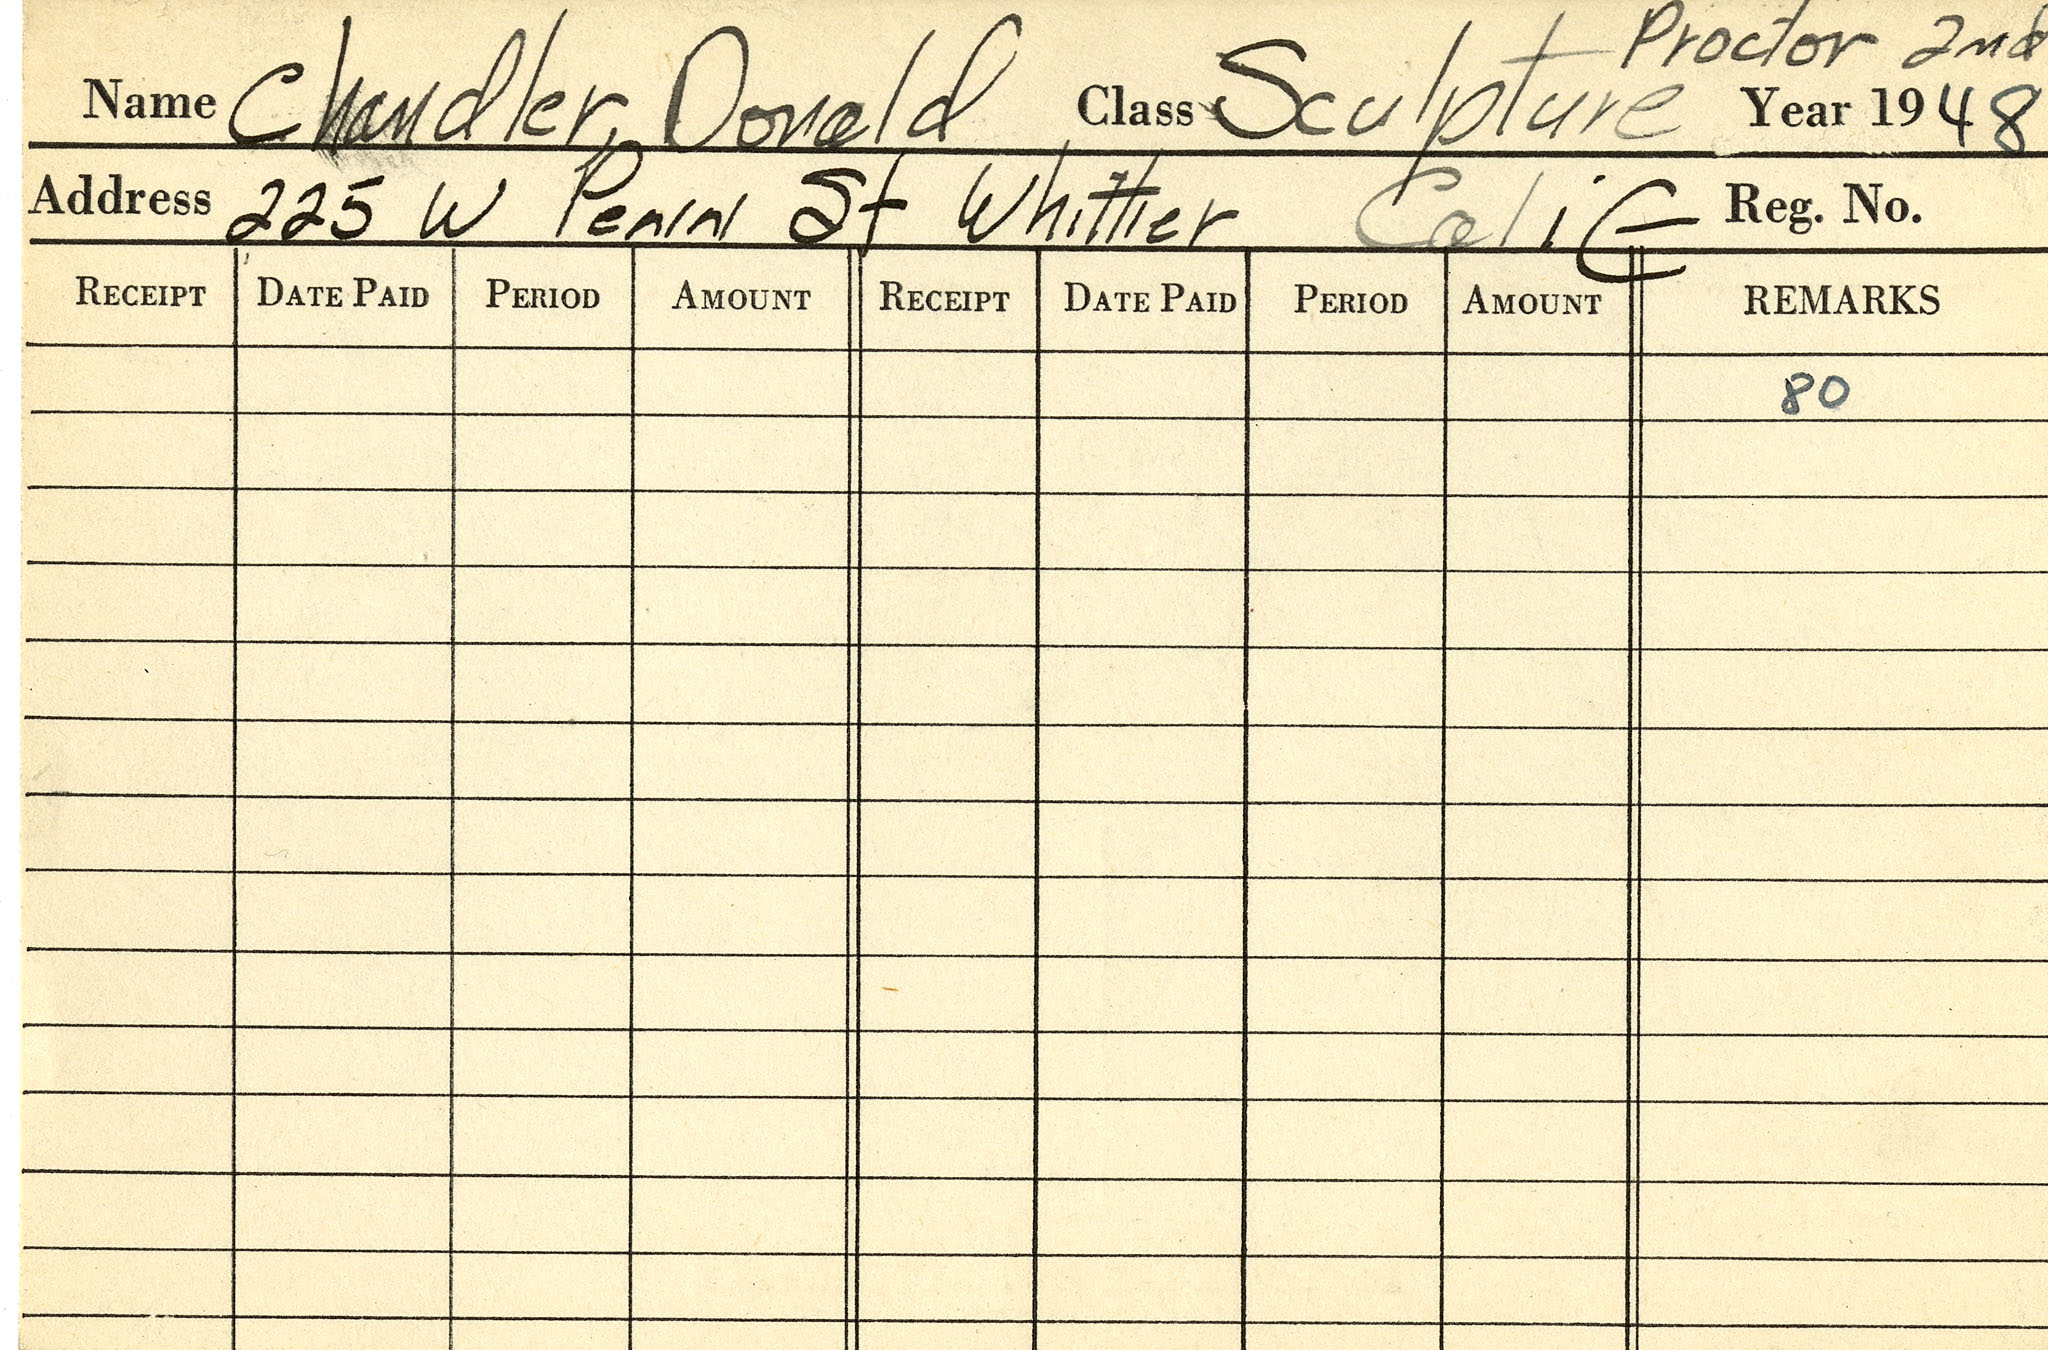 Proctor 2nd
Name Chandler, Donald Class Sculpture Year 1948
Address 225 W Penn St Whittier Calif Reg. No.
RECEIPT DATE PAID PERIOD AMOUNT RECEIPT DATE PAID PERIOD AMOUNT REMARKS
80